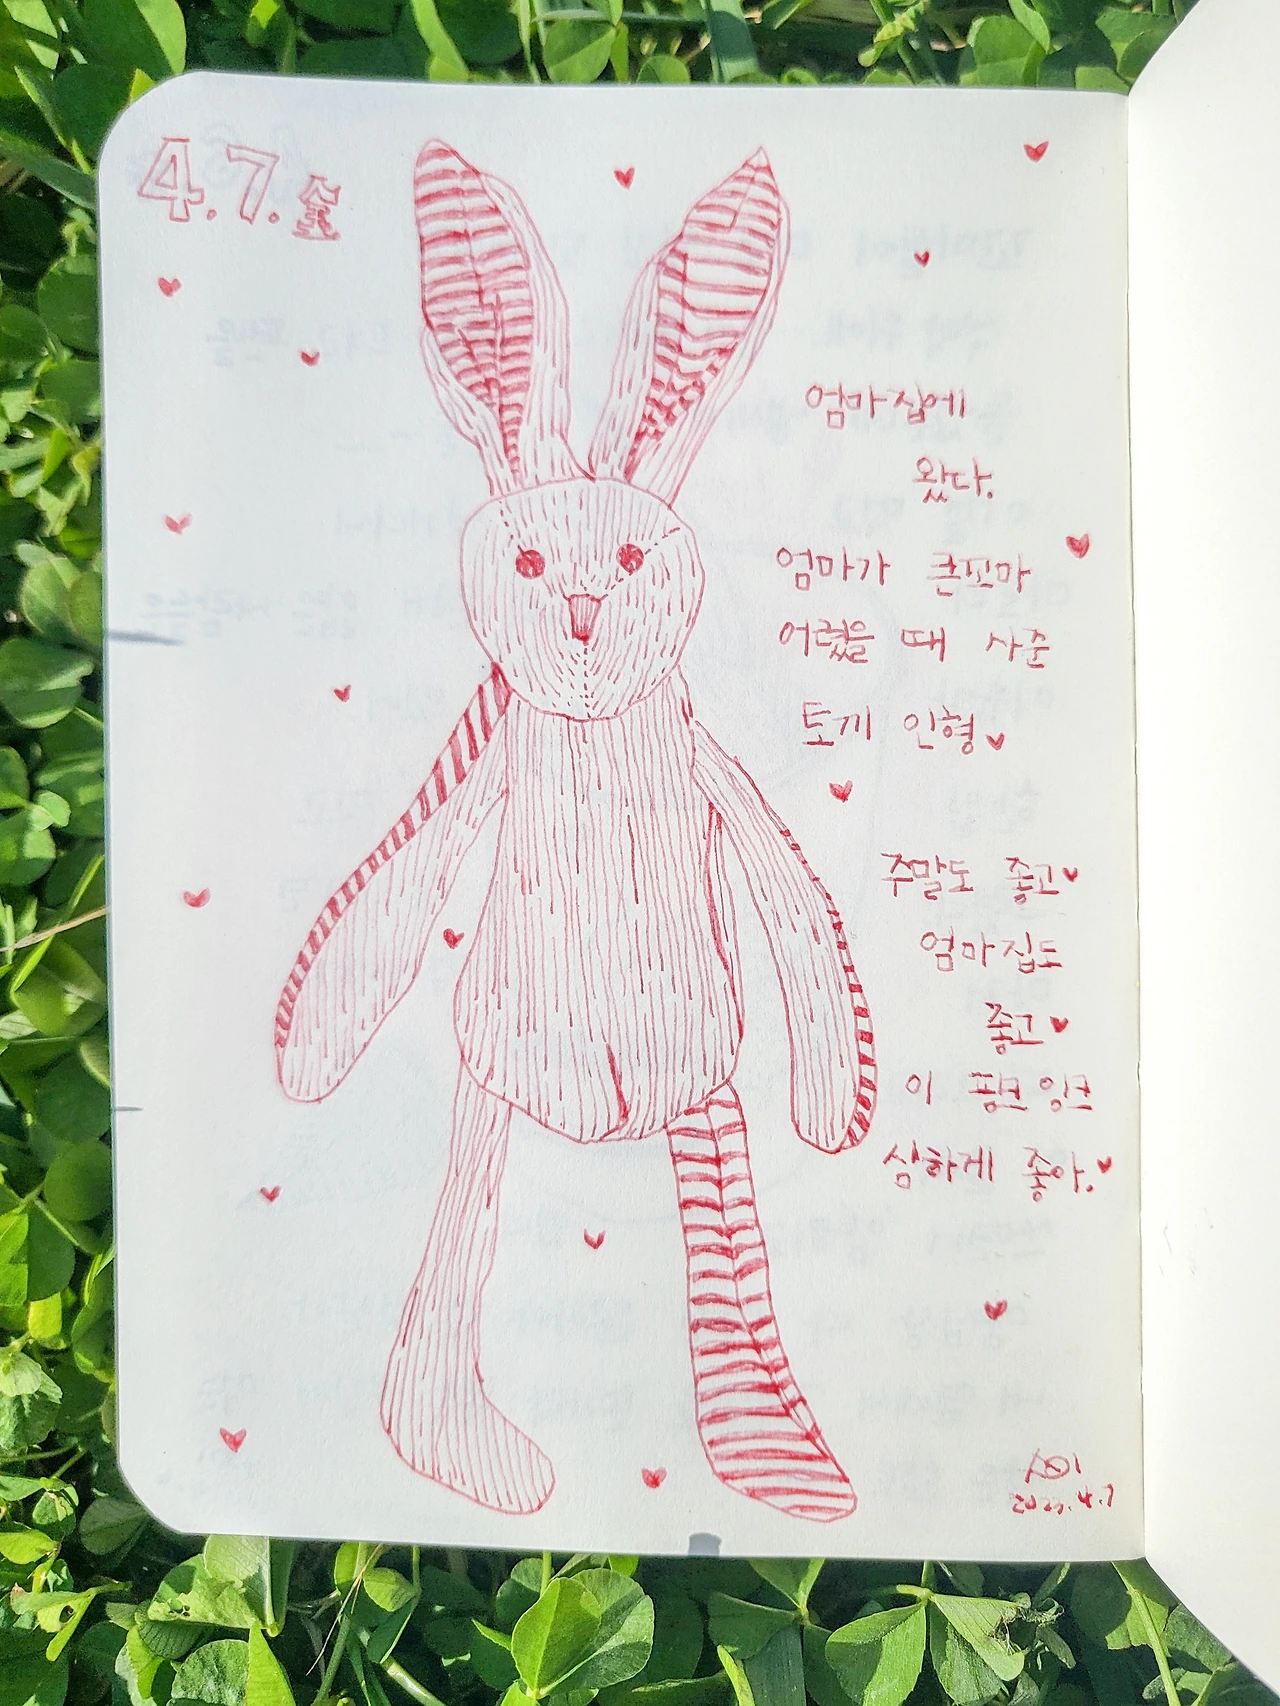 4.7.金
엄마집에
왔다.
엄마가 큰꼬마
어렸을 때 사준
토끼 인형
주말도 좋고
엄마집도
좋고
이 핑크 잉크
심하게 좋아.
4.7